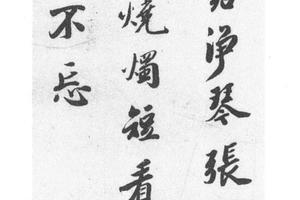 淨琴張
燒燭短看
不忘